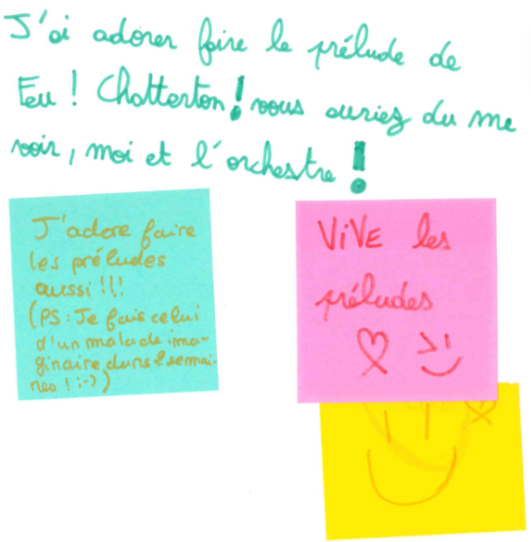 J'ai adorer faire le prélude de
Feu ! Chatterton ! vous auriez du me
voir, moi et l'orchestre !
J'adore faire
les préludes
aussi !!!
(PS : Je fais celui
d'un malade ima-
ginaire dans 2 semai-
nes ! ;-))
ViVE les
préludes